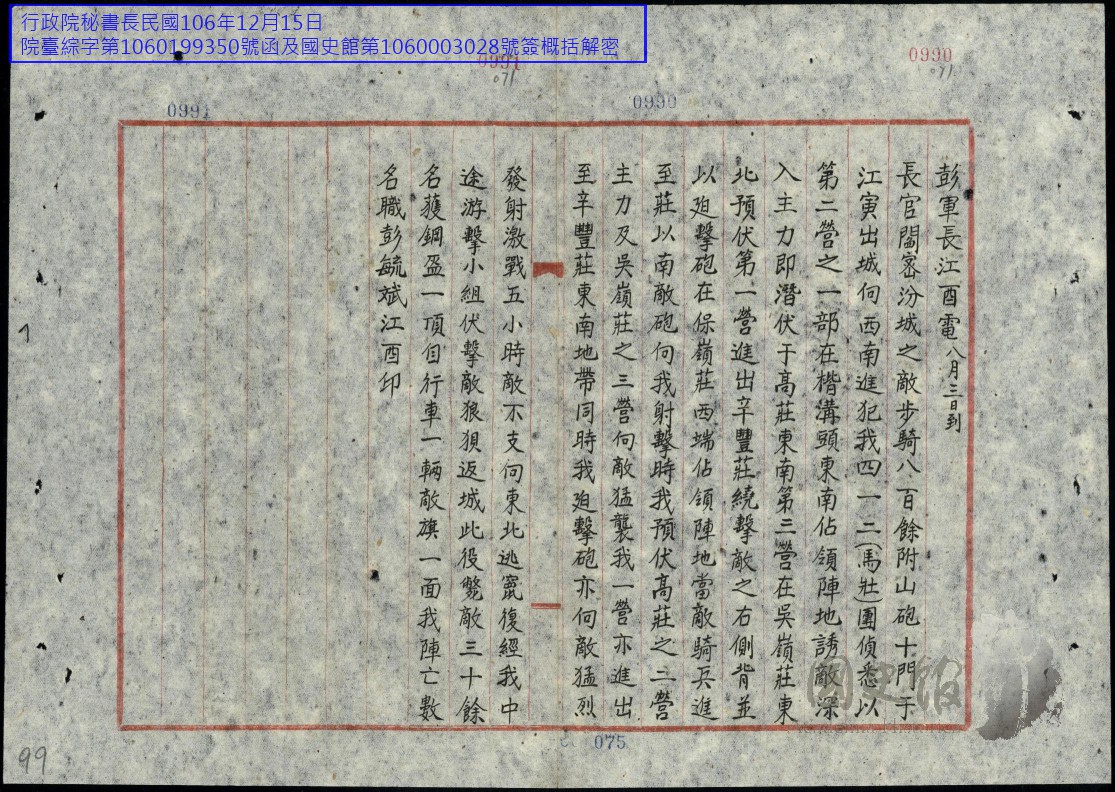 行政院秘書長民國106年12月15日
院臺綜字第1060199350號函及國史館第1060003028號簽概括解密
0990
071
0991
071
0990
0991
彭軍長江酉電八月三日到
長官閻密汾城之敵步騎八百餘附山砲十門于
江寅出城向西南進犯我四一二(馬壯)團偵悉以
第二營之一部在楷溝頭東南佔領陣地誘敵深
入主力即潛伏于高莊東南第三營在吳嶺莊東
北預伏第一營進出辛豐莊繞擊敵之右側背並
以廹擊砲在保嶺莊西端佔領陣地當敵騎兵進
至莊以南敵砲向我射擊時我預伏高莊之二營
主力及吳嶺莊之三營向敵猛襲我一營亦進出
至辛豐莊東南地帶同時我廹擊砲亦向敵猛烈
發射激戰五小時敵不支向東北逃竄復經我中
途游擊小組伏擊敵狼狽返城此役斃敵三十餘
名獲鋼盔一頂自行車一輛敵旗一面我陣亡數
名職彭毓斌江酉印
國史館
075
99